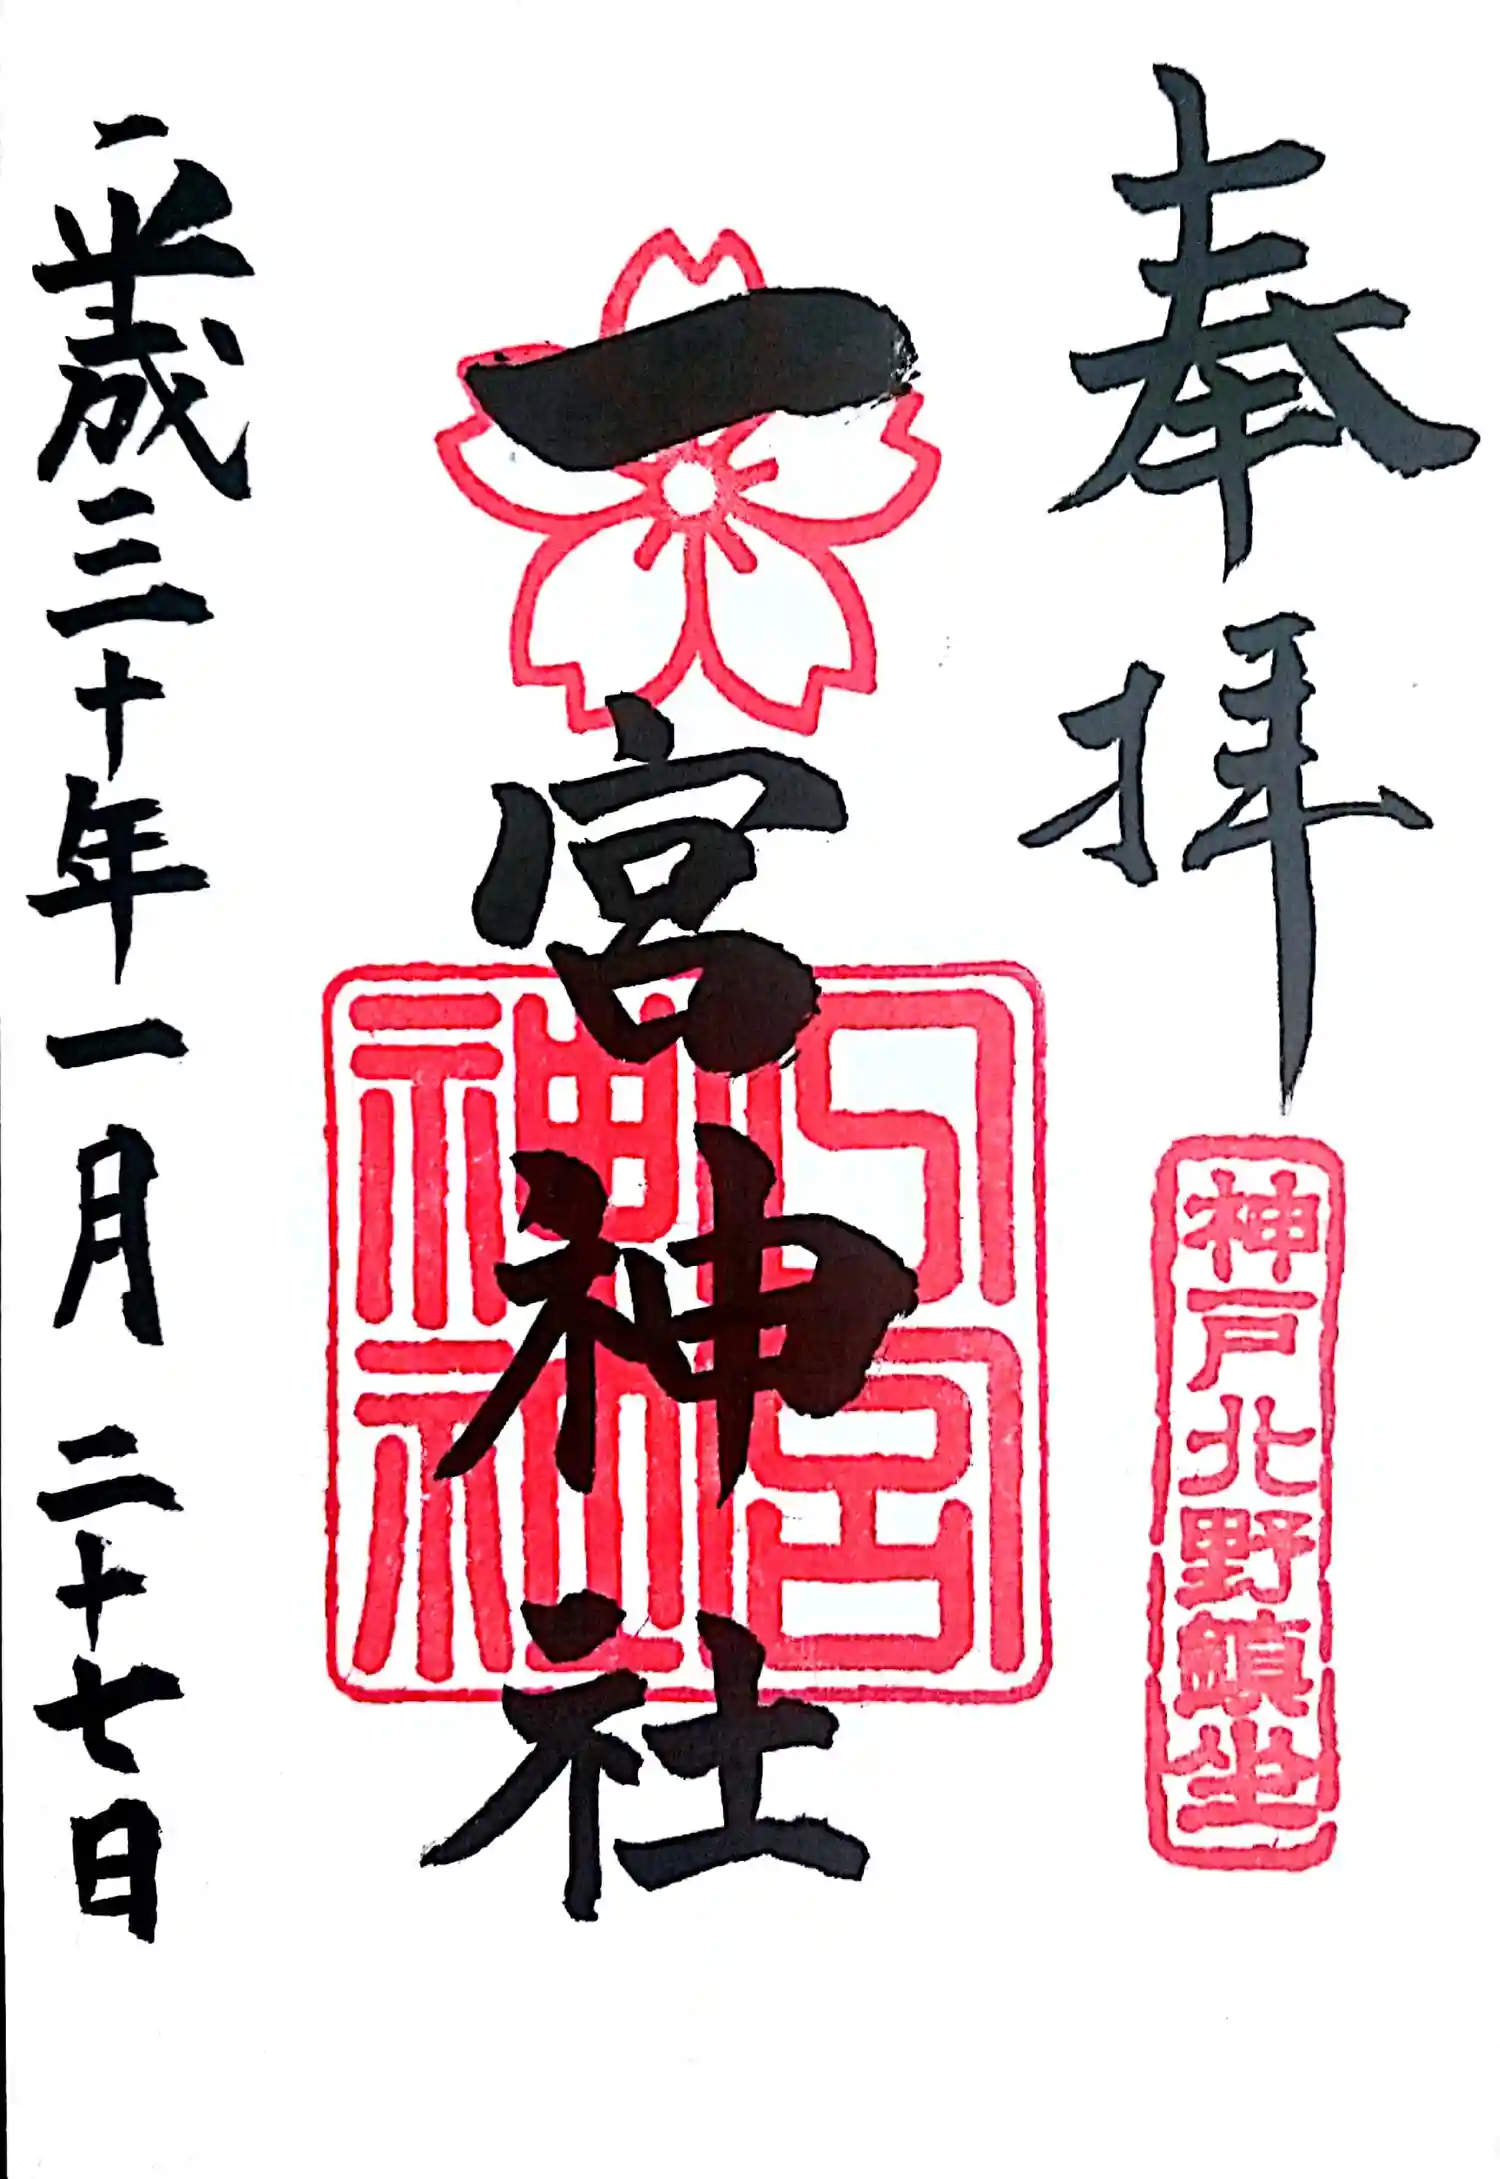 奉拝
神戸北野鎮坐
一宮神社
一宮神社
平成三十年一月二十七日